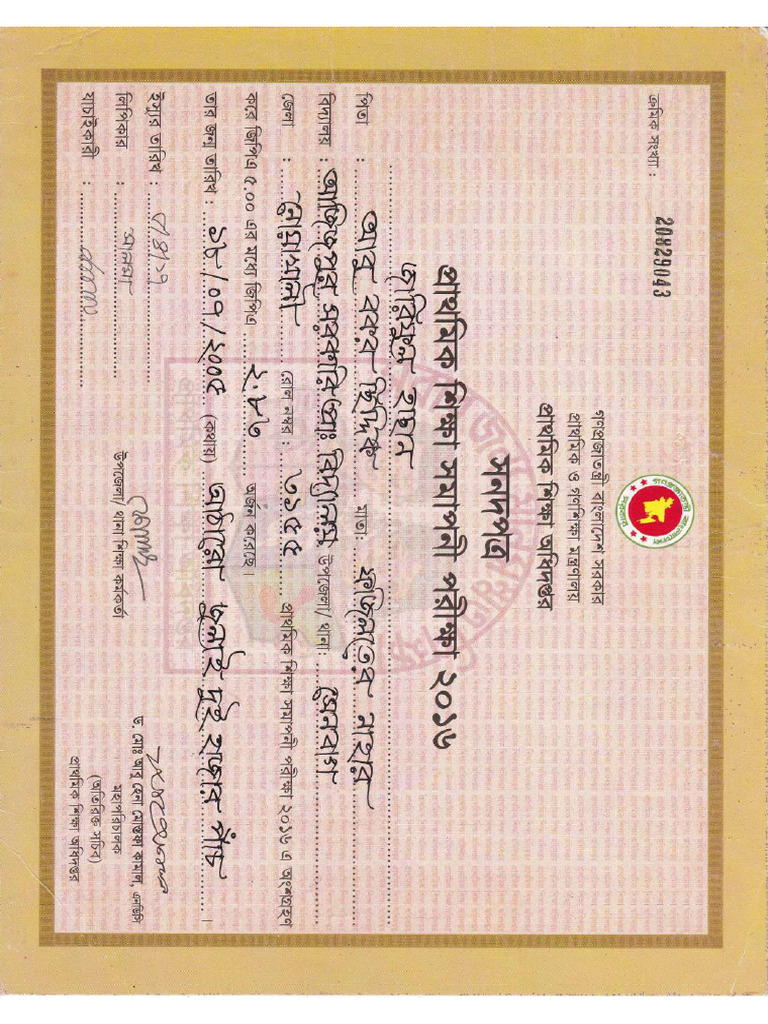 ক্রমিক সংখ্যা : 20829043
গণপ্রজাতন্ত্রী বাংলাদেশ সরকার
প্রাথমিক ও গণশিক্ষা মন্ত্রণালয়
প্রাথমিক শিক্ষা অধিদপ্তর
সনদপত্র
প্রাথমিক শিক্ষা সমাপনী পরীক্ষা ২০১৬
হাছান
পিতা : আবু বকর ছিদ্দিক মাতা: নাহার
বিদ্যালয় : আজিজপুর সরকারি প্রাঃ বিদ্যালয় উপজেলা/ থানা: সেনবাগ
জেলা : নোয়াখালী রোল নম্বর : ৩১৫৫ প্রাথমিক শিক্ষা সমাপনী পরীক্ষা ২০১৬ এ অংশগ্রহণ
করে জিপিএ ৫.০০ এর মধ্যে জিপিএ ২.৮৬ অর্জন করেছে।
তার জন্ম তারিখ : ১৮/০৭/২০০৫ (কথায়) আঠারো জুলাই দুই হাজার পাঁচ ।
ইস্যুর তারিখ :
লিপিকার :
যাচাইকারী :
উপজেলা/ থানা শিক্ষা কর্মকর্তা
ড. মোঃ আবু হেনা মোস্তফা কামাল, এনডিসি
মহাপরিচালক
(অতিরিক্ত সচিব)
প্রাথমিক শিক্ষা অধিদপ্তর